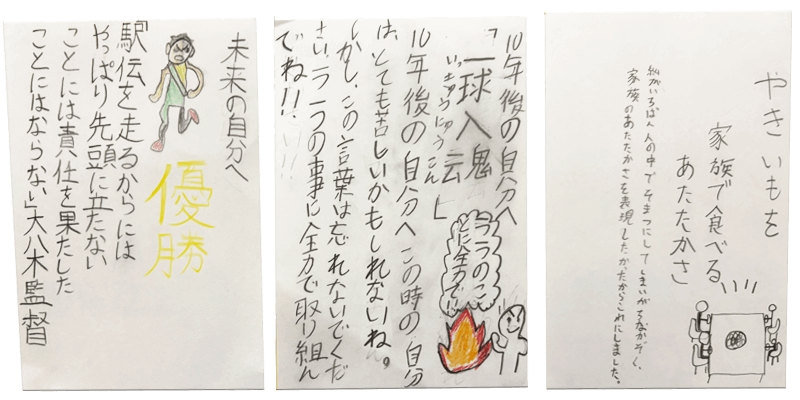 未来の自分へ
優勝
「駅伝を走るからには
やっぱり先頭に立たない
ことには責任を果たした
ことにはならない」大八木監督
10年後の自分へ
「一球入魂」
いっきゅうにゅうこん
一つ一つのこ
とに全力で!!
10年後の自分へ この時の自分
は、とても苦しいかもしれないね。
しかし、この言葉は忘れないでくだ
さい。一つ一つの事に全力で取り組ん
でね!!
やきいもを
家族で食べる
あたたかさ
私がいちばん人の中でそまつにしてしまいがちなかぞく、
家族のあたたかさを表現したかったからこれにしました。